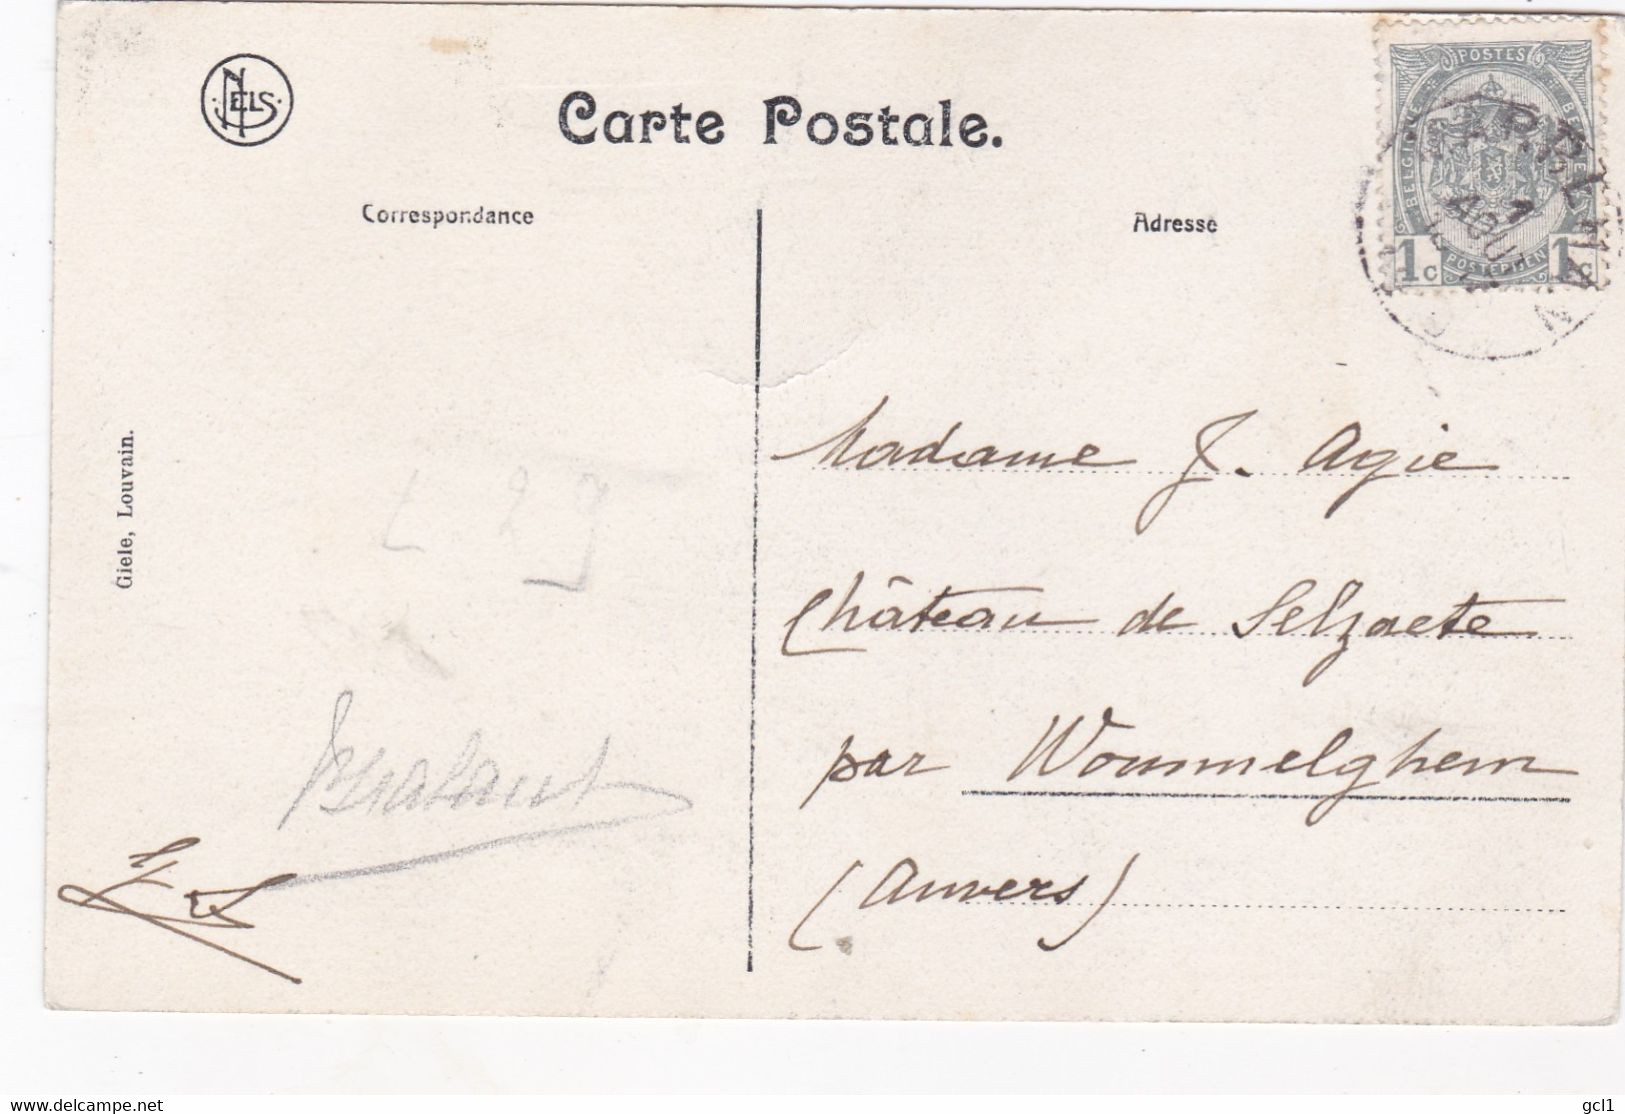 NELS
Carte Postale.
Correspondance
Adresse
POSTES
BELGIQUE
1c
POSTERIJEN
1c
AOUT
Giele, Louvain.
Madame J. Agie
Château de Selzaete
par Wommelghem
(Anvers)
L 27
Brabant
www.delcampe.net
gcl1